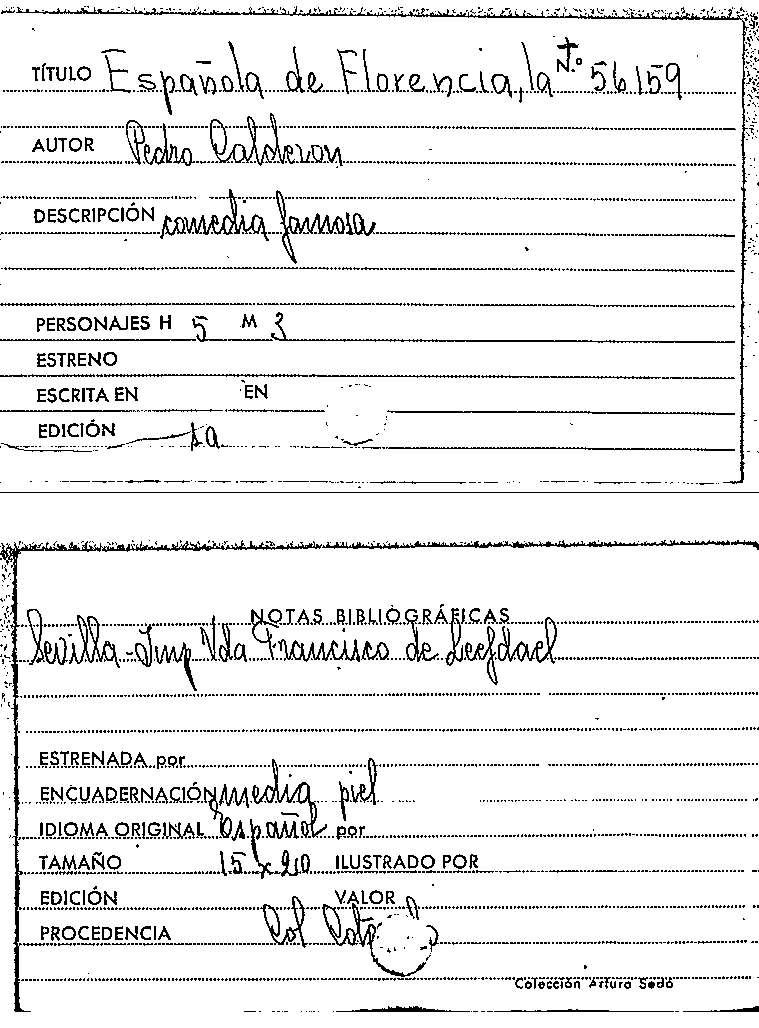 TÍTULO Española de Florencia, la N.º 56159
AUTOR Pedro Calderon
DESCRIPCIÓN comedia famosa
PERSONAJES H 5 M 3
ESTRENO
ESCRITA EN EN
EDICIÓN sa
NOTAS BIBLIOGRÁFICAS
Sevilla - Imp Vda Francisco de Leefdael
ESTRENADA por
ENCUADERNACIÓN media piel
IDIOMA ORIGINAL Español por
TAMAÑO 15 x 20 ILUSTRADO POR
EDICIÓN VALOR
PROCEDENCIA Col
Colección Arturo Sedó